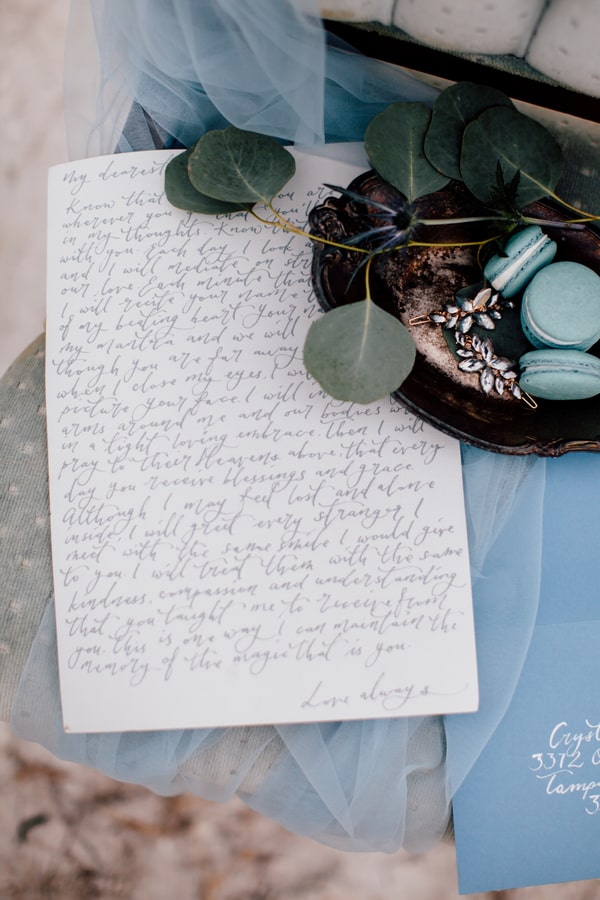 My dearest
Know that you are
wherever you
in my thoughts. Know th
with you. Each day I look
and I will mediate on str
our love. Each minute tha
I will recite your name
of my beating heart. Your n
my mantra and we will
though you are far away
when I close my eyes, I wi
picture your face. I will
arms around me and our bodies
in a tight loving embrace. Then I will
pray to their Heavens above that every
day you receive blessings and grace.
Although I may feel lost and alone
inside, I will greet every stranger I
meet with the same smile I would give
to you. I will treat them with the same
kindness, compassion and understanding
that you taught me to receive from
you. This is one way I can maintain the
memory of the magic that is you.
Love always
Cryst
3372
Tampa
3